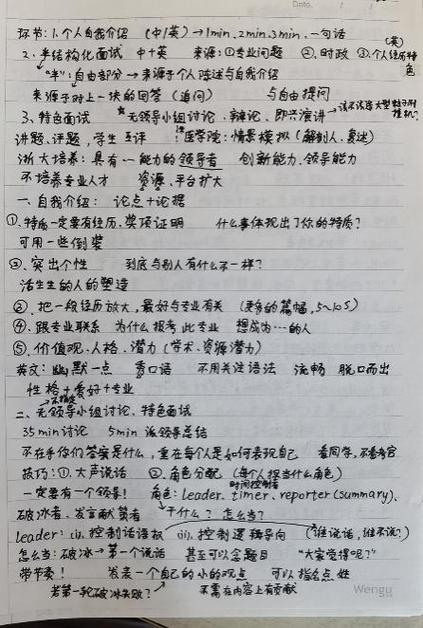 环节：1.个人自我介绍 （中/英）→1min、2min、3min、一句话
2.半结构化面试 中+英 来源：①专业问题 ②.时政 ③.个人经历特色 （英）
"半"：自由部分→来源于个人陈述与自我介绍
来源于对上一块的回答（追问） 与自由提问
3、特色面试 无领导小组讨论、辩论、即兴演讲→该不该停大型粒子对撞机？
讲题、评题，学生互评 医学院：情景模拟（解剖人、急速）
浙大培养：具有一能力的领导者 创新能力、领导能力
不培养专业人才 资源、平台扩大
一、自我介绍： 论点+论据
①.特质一定要有经历、奖项证明 什么事体现出了你的特质？
可用一些倒装
②、突出个性 到底与别人有什么不一样？
活生生的人的塑造
③、把一段经历放大，最好与专业有关 （更多的篇幅，5~10s）
④、跟专业联系 为什么报考此专业 想成为…的人
⑤、价值观、人格、潜力（学术、资源潜力）
英文：幽默一点 秀口语 不用关注语法 流畅 脱口而出
性格+爱好+专业
二、无领导小组讨论、特色面试
35min讨论 5min 派领导总结
不在乎你们答案是什么，重在每个人是如何表现自己 看同学，不看考官
技巧：①、大声说话 ②、角色分配（每个人担当什么角色）
一定要有一个领导！ 角色：leader、timer、reporter（summary）、
时间控制者
破冰者、发言献策者 →干什么？怎么当？
leader：(i)、控制话语权 (ii)、控制逻辑导向 （谁说话，谁不说？）
怎么当：破冰→第一个说话 甚至可以念题目 "大家觉得呢？"
带节奏！ 发表一个自己的小的观点 可以指名点姓
若第一轮破冰失败？ 不需在内容上有贡献
Wengu